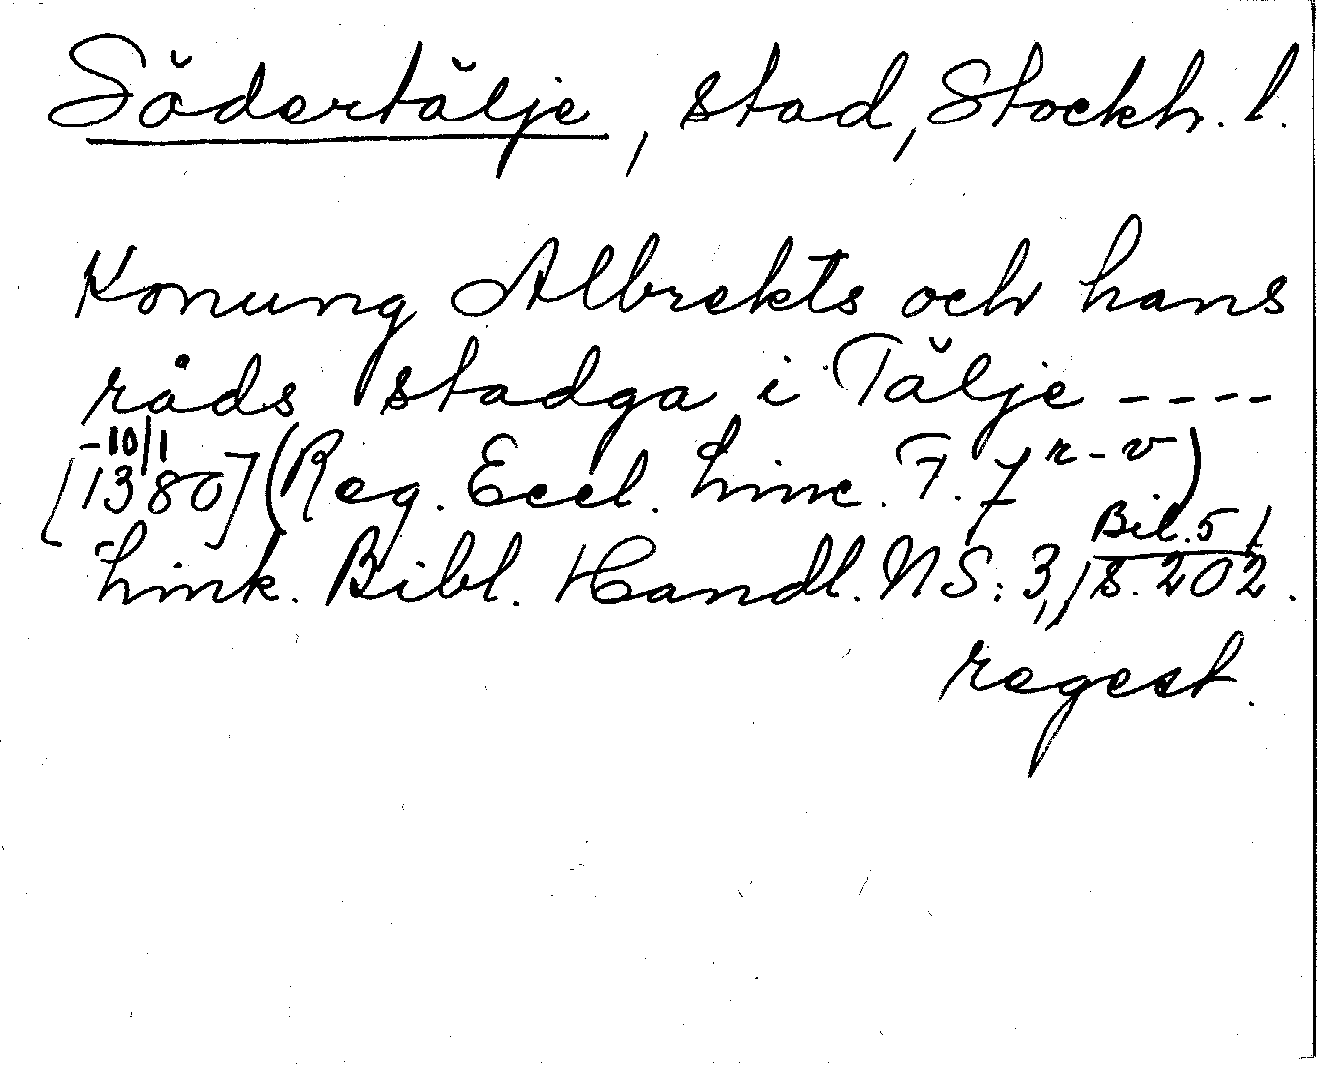 Södertälje, stad, Stockh. l.
Konung Albrekts och hans
råds stadga i Tälje ----
-10/1
[1380] (Reg. Eccl. Linc. F. 7 r-v)
Bil. 5
Link. Bibl. Handl. NS: 3, s. 202.
regest.